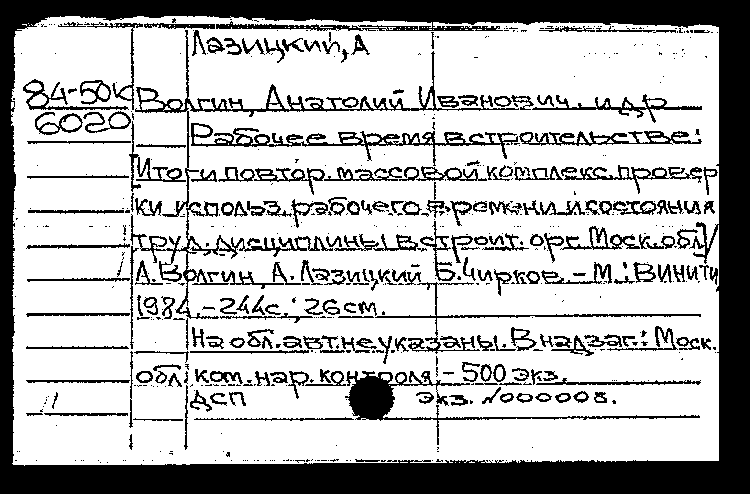 Лазицкий, А
84-50К
6020
Волгин, Анатолий Иванович. и др
Рабочее время в строительстве:
[Итоги повтор. массовой комплекс. провер
ки использ. рабочего времени и состояния
труд. дисциплины в строит. орг. Моск. обл]/
А. Волгин, А. Лазицкий, Б. Чирков. – М.: ВИНИТИ,
1984. – 244с.; 26 см.
На обл. авт. не указаны. В надзаг.: Моск.
обл. ком. нар. контроля. – 500 экз.
ДСП экз. №000008.